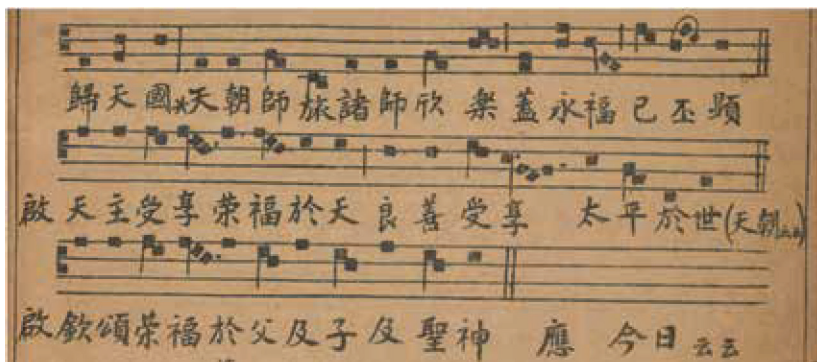 歸天國*天朝師旅諸師欣樂蓋永福已丕顯
啟天主受享荣福於天良善受享太平於世(天朝云云)
啟欽頌荣福於父及子及聖神應今日云云